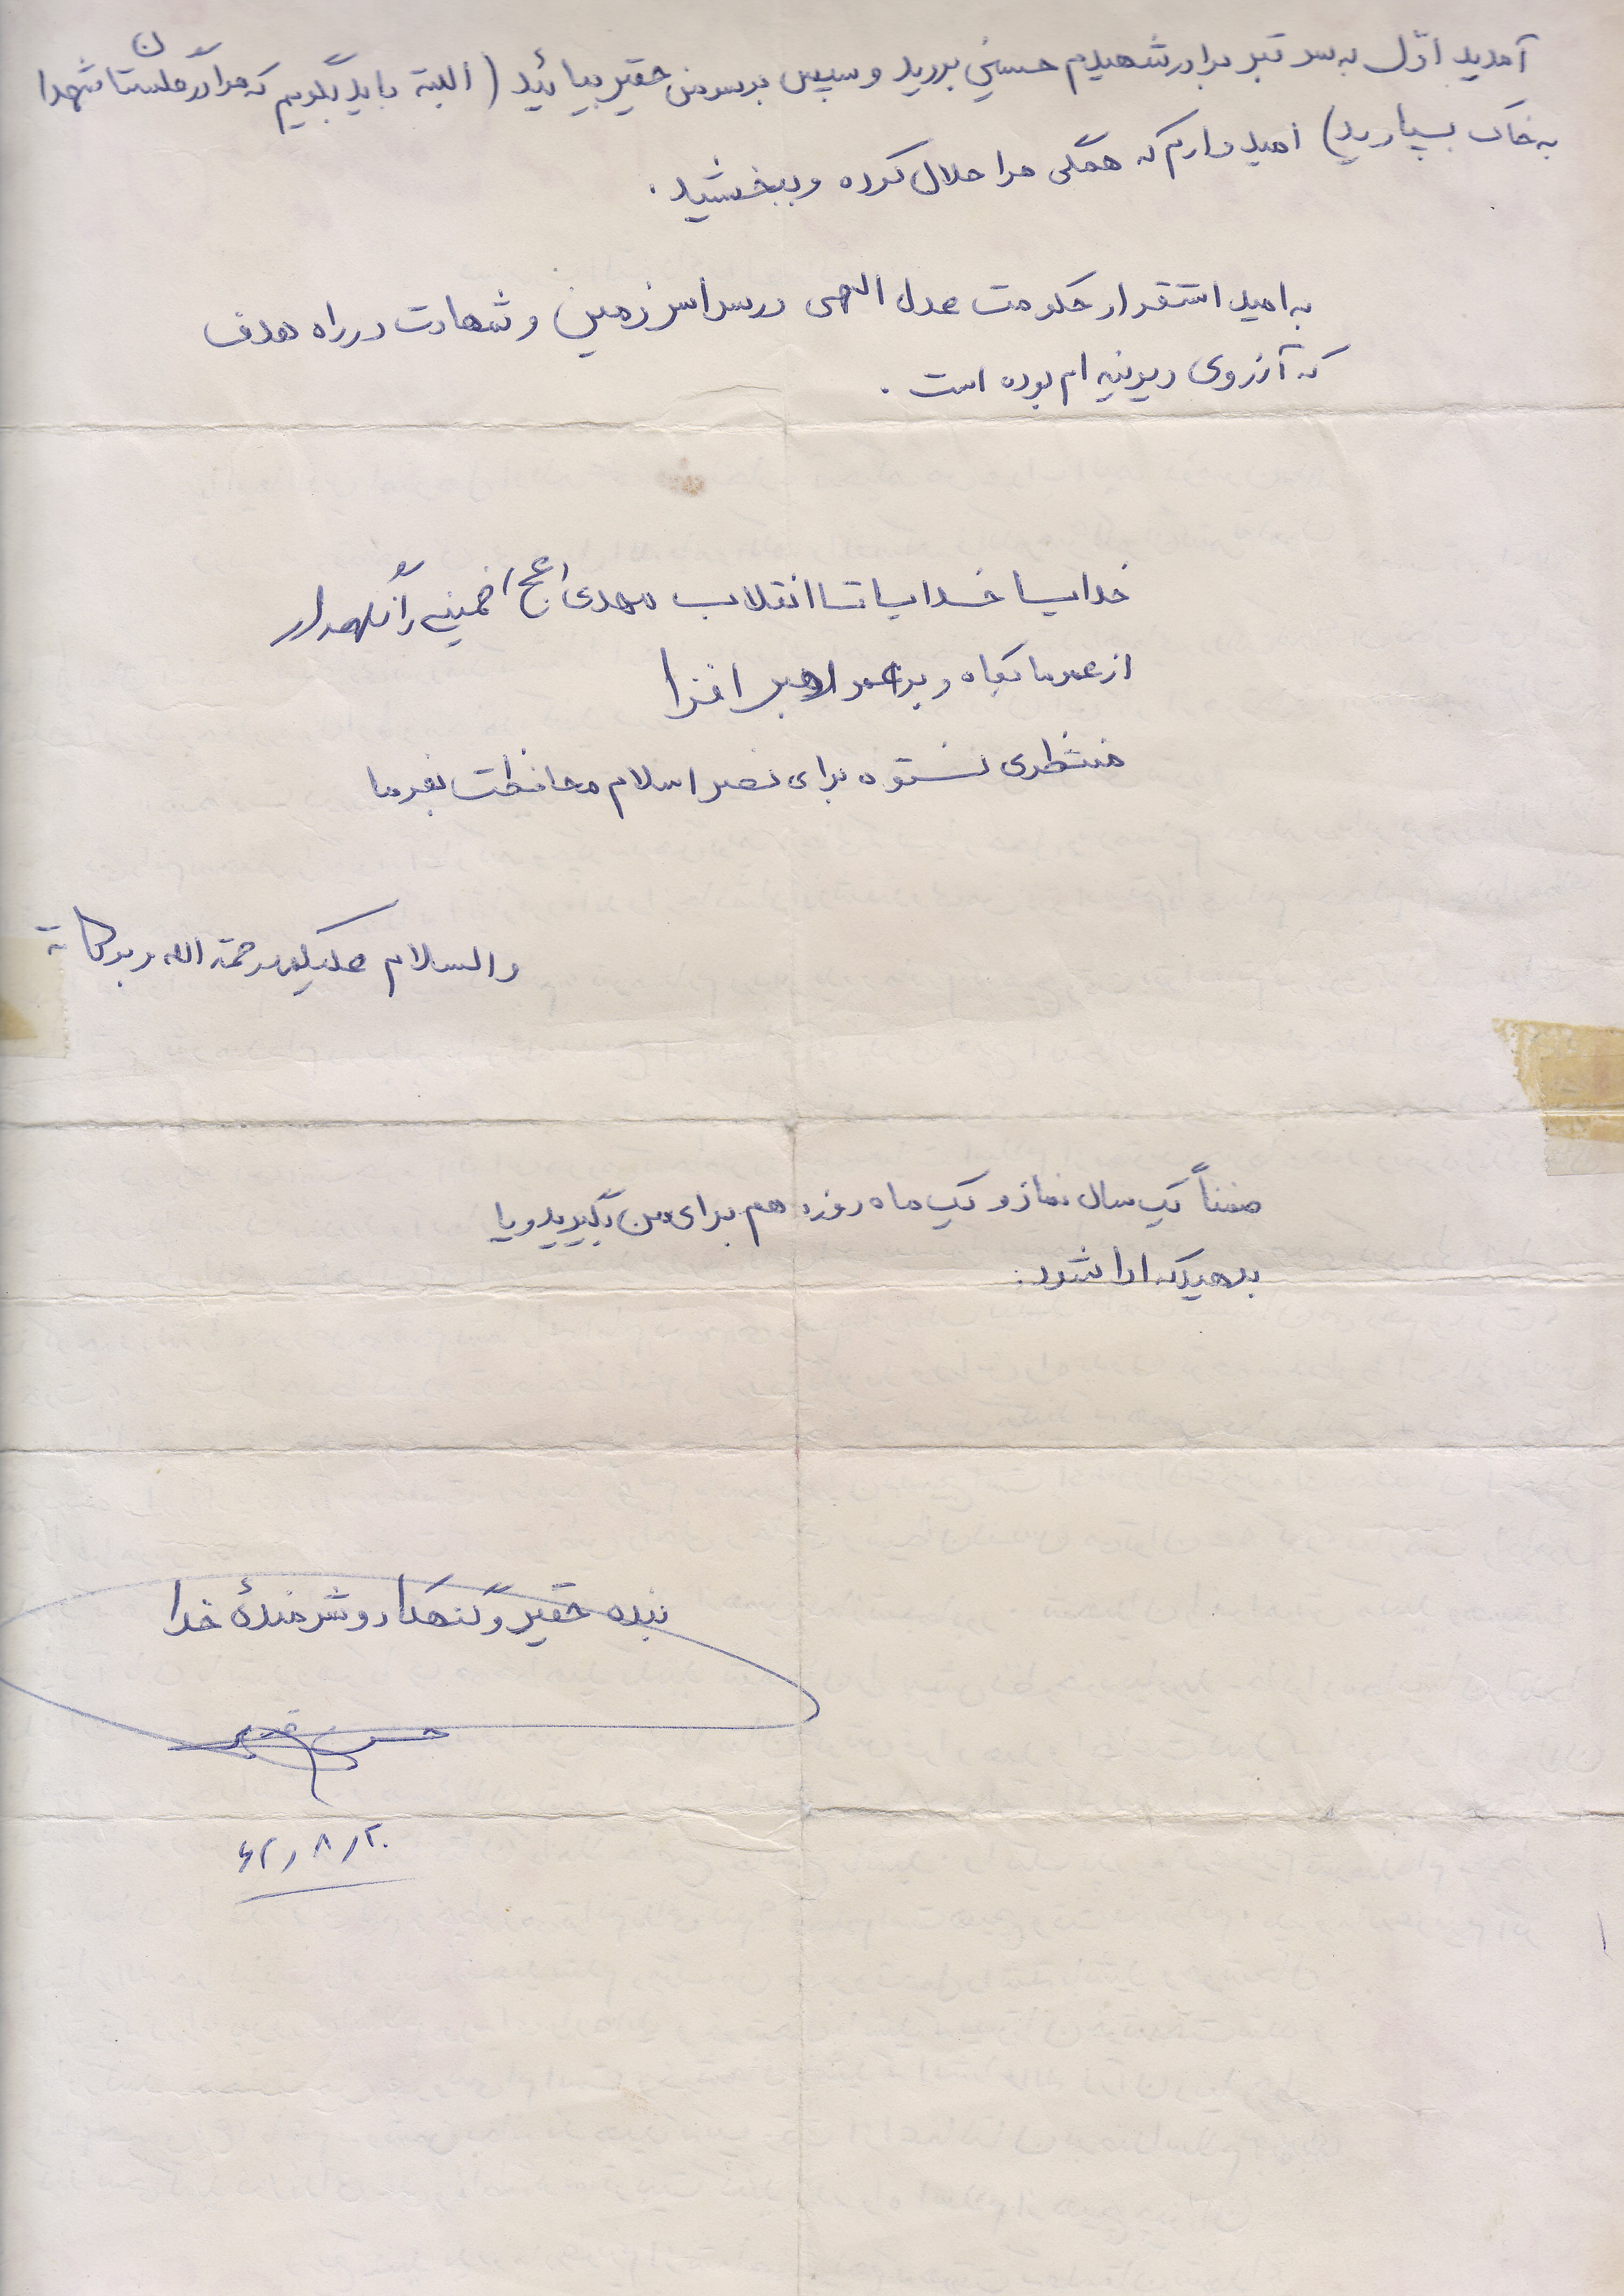 آمدید اوّل به سر قبر برادر شهیدم حسینی بروید و سپس بر سر من حقیر بیائید (البته باید بگویم که مرا در گلستان شهدا
به خاک بسپارید) امیدوارم که همگی مرا حلال کرده و ببخشید.
به امید استقرار حکومت عدل الهی در سراسر زمین و شهادت در راه هدف
که آرزوی دیرینه ام بوده است.
خدایا خدایا تا انقلاب مهدی (عج) خمینی را نگهدار
از عمر ما بکاه و بر عمر رهبر افزا
منتظری نستوه برای نصر اسلام محافظت بفرما
والسلام علیکم و رحمة الله و برکاته
ضمناً یک سال نماز و یک ماه روزه هم برای من بگیرید و یا
بدهید که ادا شود.
بنده حقیر و گنهکار و شرمندهٔ خدا
حسن
۶۲٫۸٫۲۰